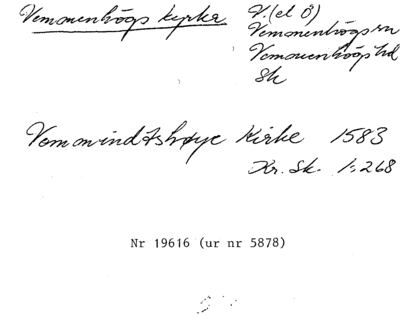 Vemmenhögs kyrka
V. (el Ö)
Vemmenhögs sn
Vemmenhögs hd
Sk
Vommindtshøye Kirke 1583
Kr. Sk. 1:268
Nr 19616 (ur nr 5878)